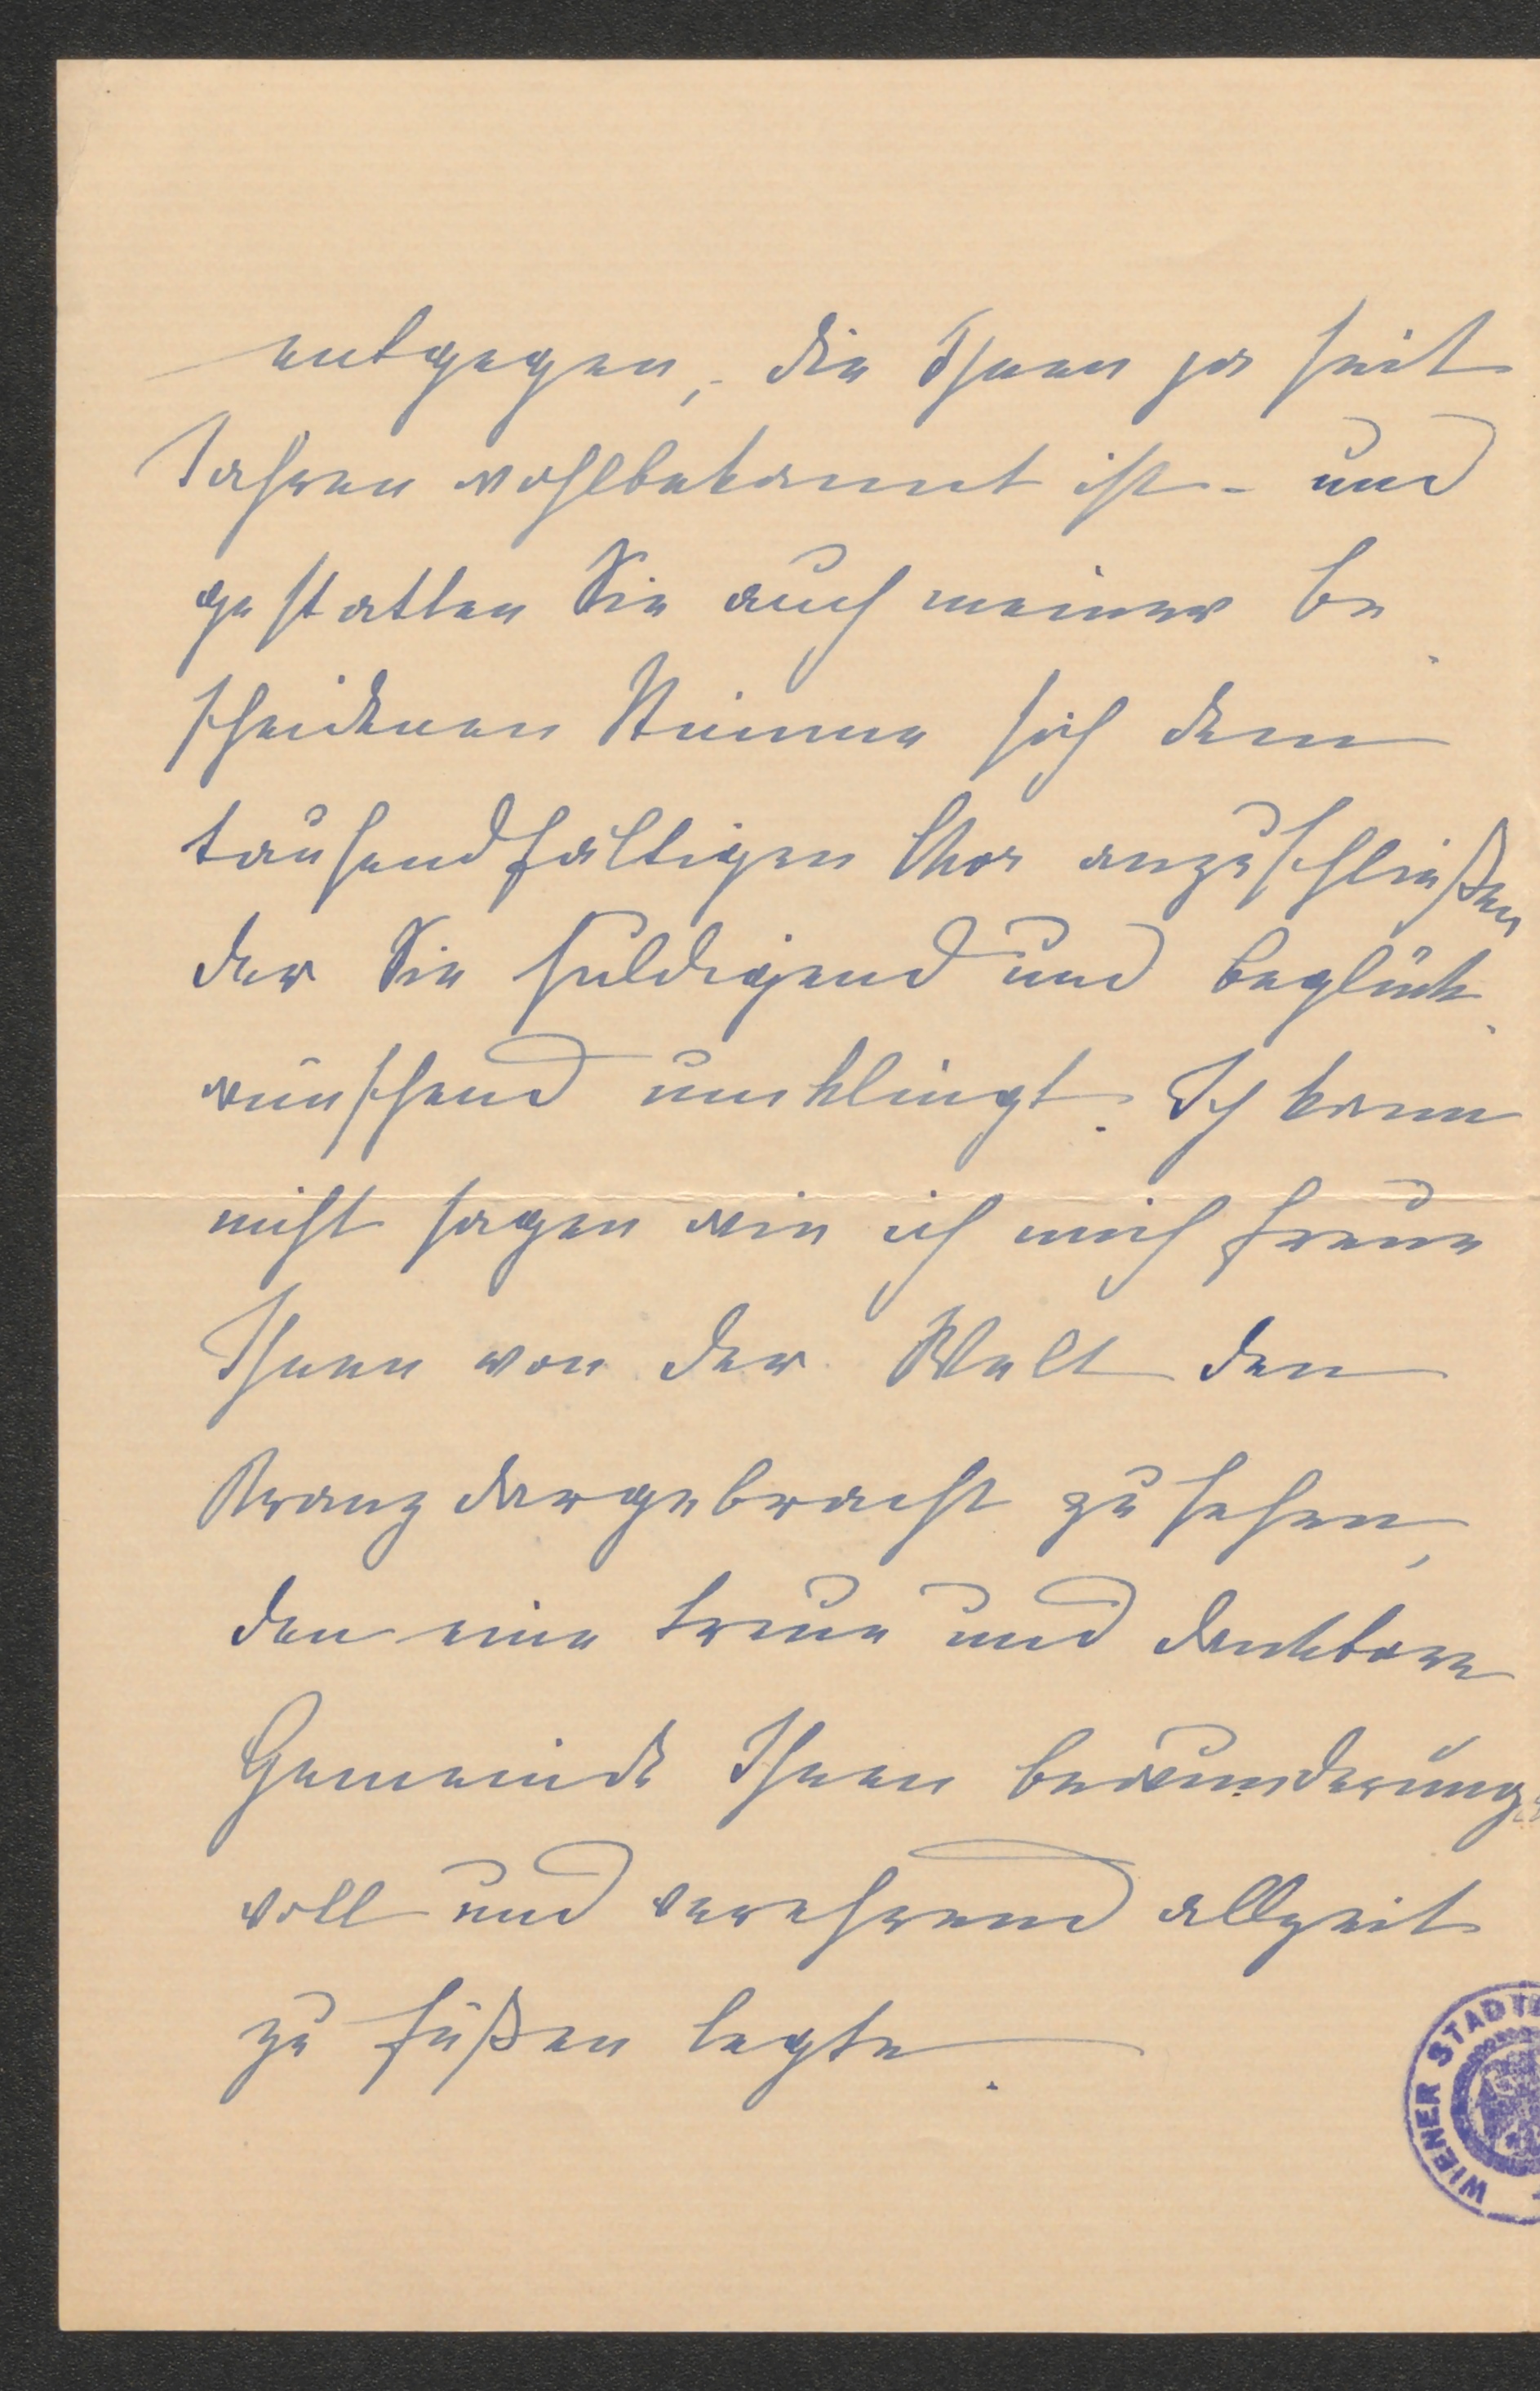 entgegen, die Ihnen ja seit
Jahren wohlbekannt ist - und
gestatten Sie auch meiner be
scheidenen Stimme sich dem
tausendfältigen Chor anzuschließen
der Sie huldigend und beglück
wünschend umklingt. Ich kann
nicht sagen wie ich mich freue
Ihnen von der Welt den
Kranz dargebracht zu sehen,
den eine treue und dankbare
Gemeinde Ihnen bewunderungs
voll und verehrend allzeit
zu Füßen legte.
WIENER STADT